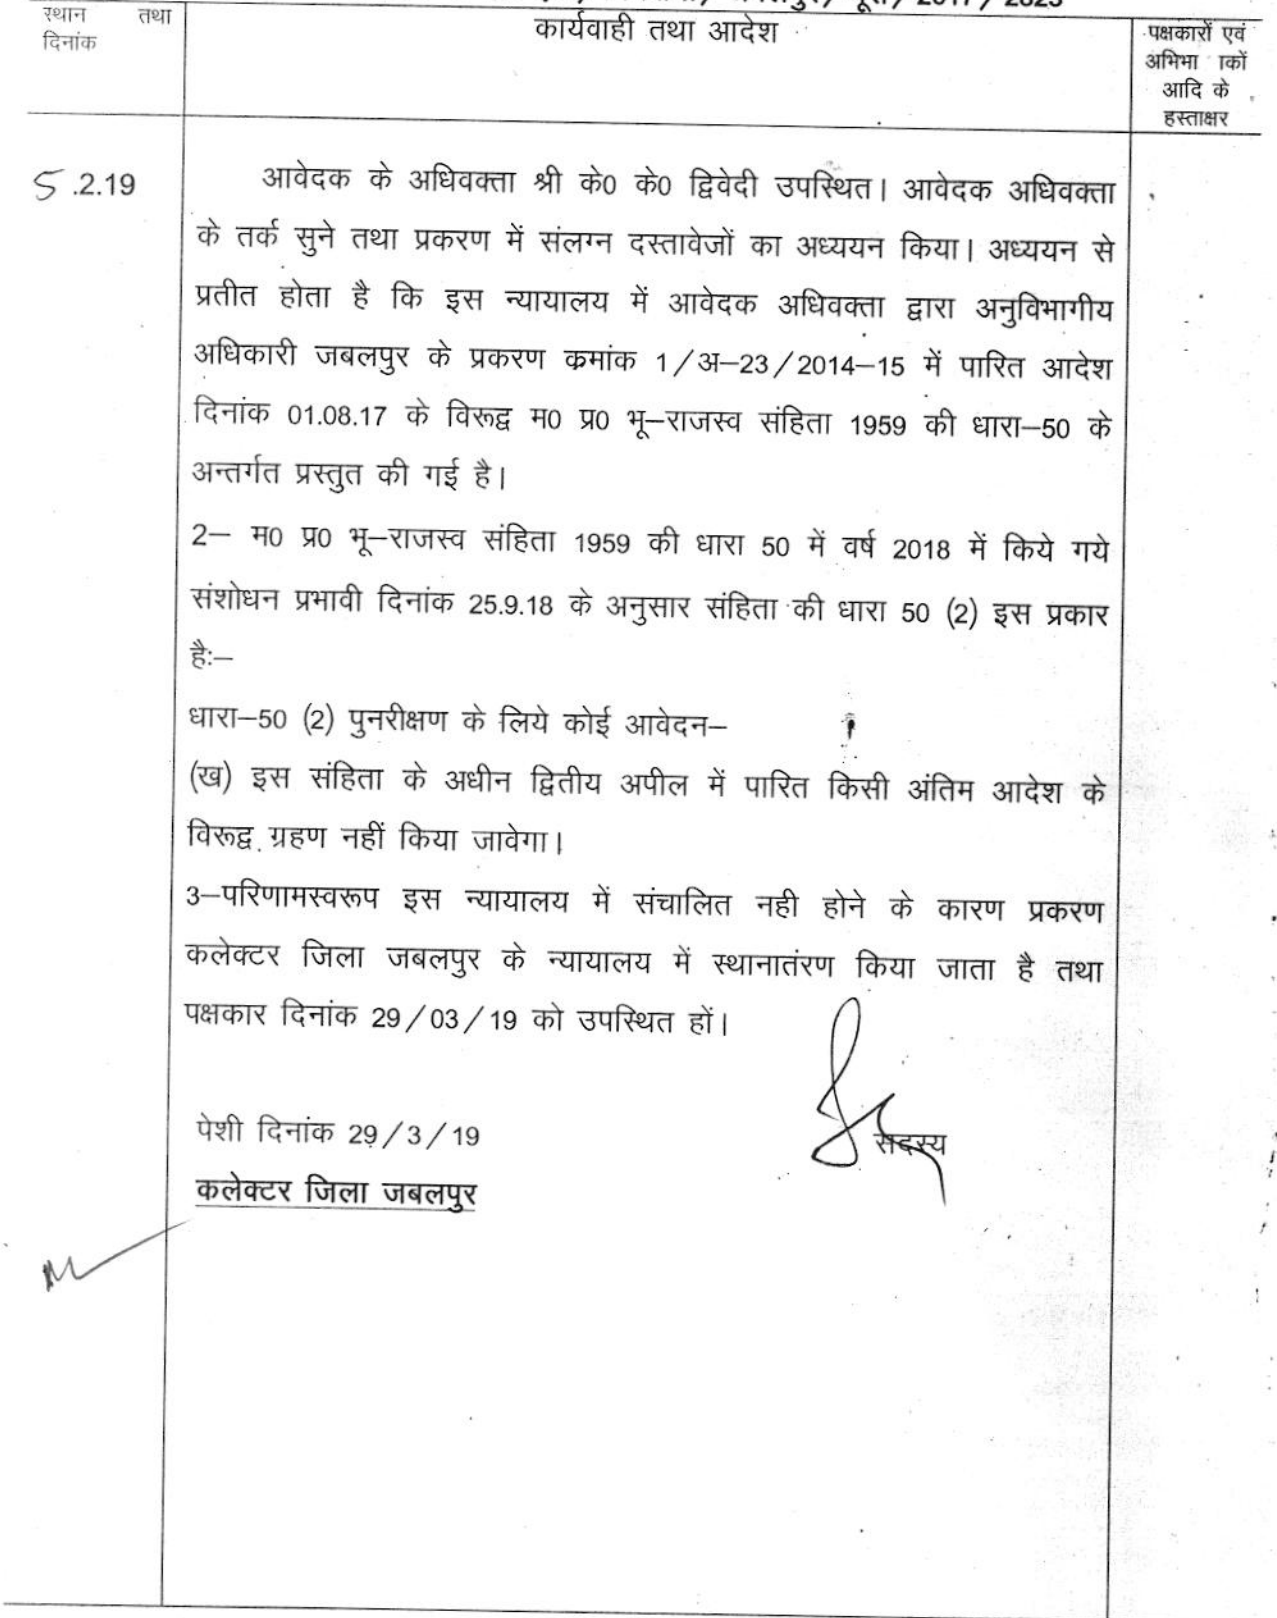 2017 / 2823
स्थान तथा
दिनांक
कार्यवाही तथा आदेश
पक्षकारों एवं
अभिभा कों
आदि के
हस्ताक्षर
5.2.19
आवेदक के अधिवक्ता श्री के0 के0 द्विवेदी उपस्थित। आवेदक अधिवक्ता
के तर्क सुने तथा प्रकरण में संलग्न दस्तावेजों का अध्ययन किया। अध्ययन से
प्रतीत होता है कि इस न्यायालय में आवेदक अधिवक्ता द्वारा अनुविभागीय
अधिकारी जबलपुर के प्रकरण कमांक 1/अ–23/2014–15 में पारित आदेश
दिनांक 01.08.17 के विरूद्व म0 प्र0 भू–राजस्व संहिता 1959 की धारा–50 के
अन्तर्गत प्रस्तुत की गई है।
2– म0 प्र0 भू–राजस्व संहिता 1959 की धारा 50 में वर्ष 2018 में किये गये
संशोधन प्रभावी दिनांक 25.9.18 के अनुसार संहिता की धारा 50 (2) इस प्रकार
है:–
धारा–50 (2) पुनरीक्षण के लिये कोई आवेदन–
(ख) इस संहिता के अधीन द्वितीय अपील में पारित किसी अंतिम आदेश के
विरूद्व ग्रहण नहीं किया जावेगा।
3–परिणामस्वरूप इस न्यायालय में संचालित नही होने के कारण प्रकरण
कलेक्टर जिला जबलपुर के न्यायालय में स्थानातंरण किया जाता है तथा
पक्षकार दिनांक 29/03/19 को उपस्थित हों।
पेशी दिनांक 29/3/19
सदस्य
कलेक्टर जिला जबलपुर